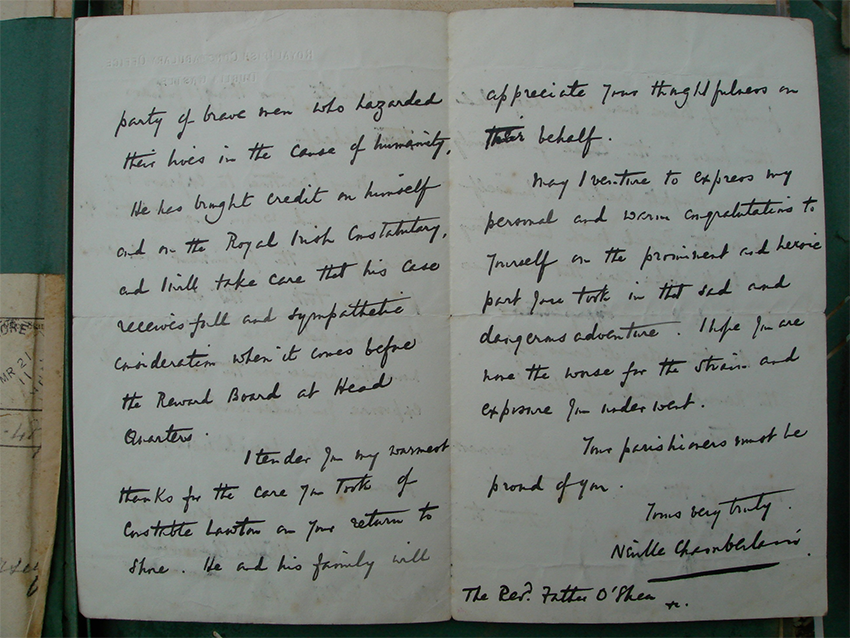 party of brave men who hazarded
their lives in the cause of humanity.
He has brought credit on himself
and on the Royal Irish Constabulary,
and I will take care that his case
receives full and sympathetic
consideration when it comes before
the Reward Board at Head
Quarters.
I tender you my warmest
thanks for the care you took of
Constable Lawton on your return to
shore. He and his family will
appreciate your thoughtfulness on
their behalf.
May I venture to express my
personal and warm congratulations to
yourself on the prominent and heroic
part you took in that sad and
dangerous adventure. I hope you are
none the worse for the strain and
exposure you underwent.
Your parishioners must be
proud of you.
Yours very truly.
Neville Chamberlain.
The Revd. Father O'Shea
MR 21
11